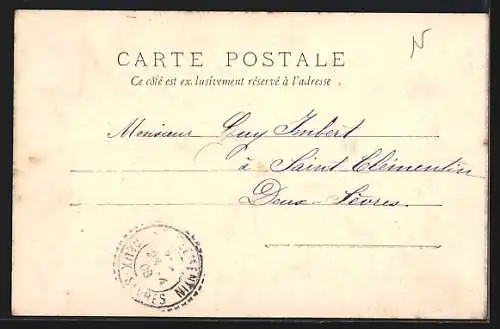 CARTE POSTALE
Ce côté est exclusivement réservé à l'adresse.
Monsieur Guy Imbert
à Saint Clémentin
Deux-Sèvres.
DEUX-SÈVRES